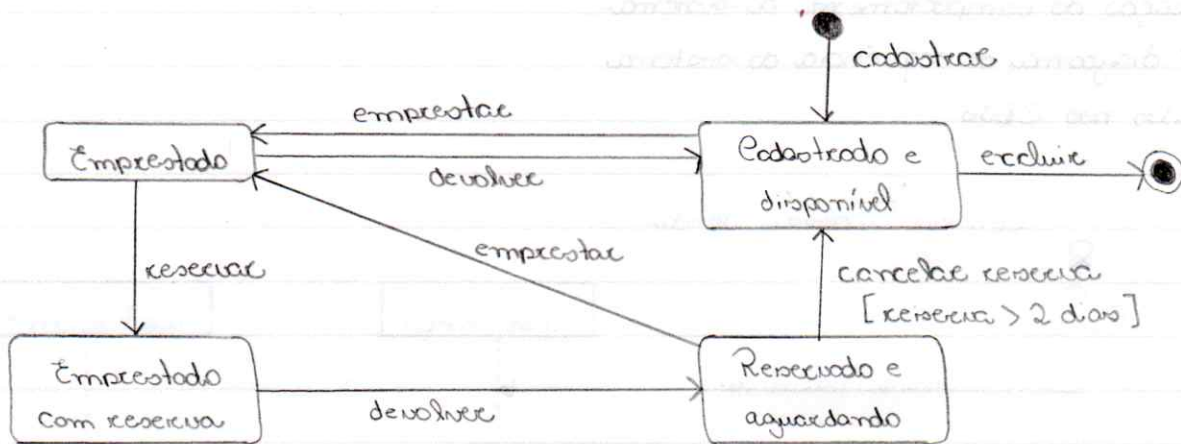 cadastrar
emprestar
Emprestado
Cadastrado e
disponível
excluir
devolver
emprestar
reservar
cancelar reserva
[reserva > 2 dias]
Emprestado
com reserva
devolver
Reservado e
aguardando